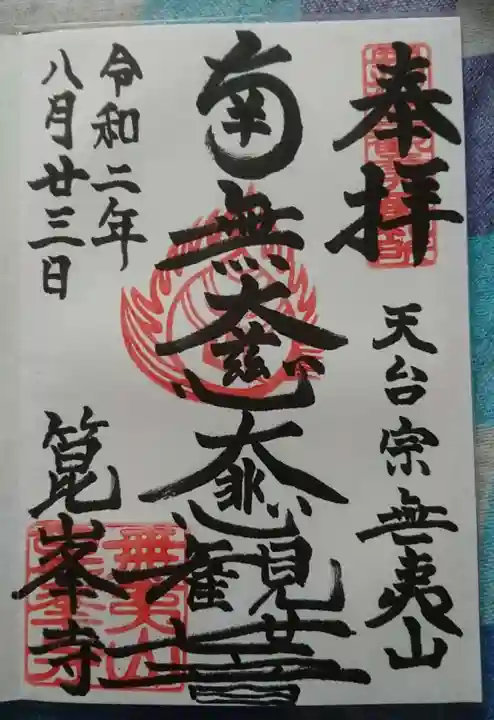 奉拝
天台宗無夷山
南無大慈大悲觀世音
令和二年
八月廿三日
箟峯寺
無夷山
箟峯寺